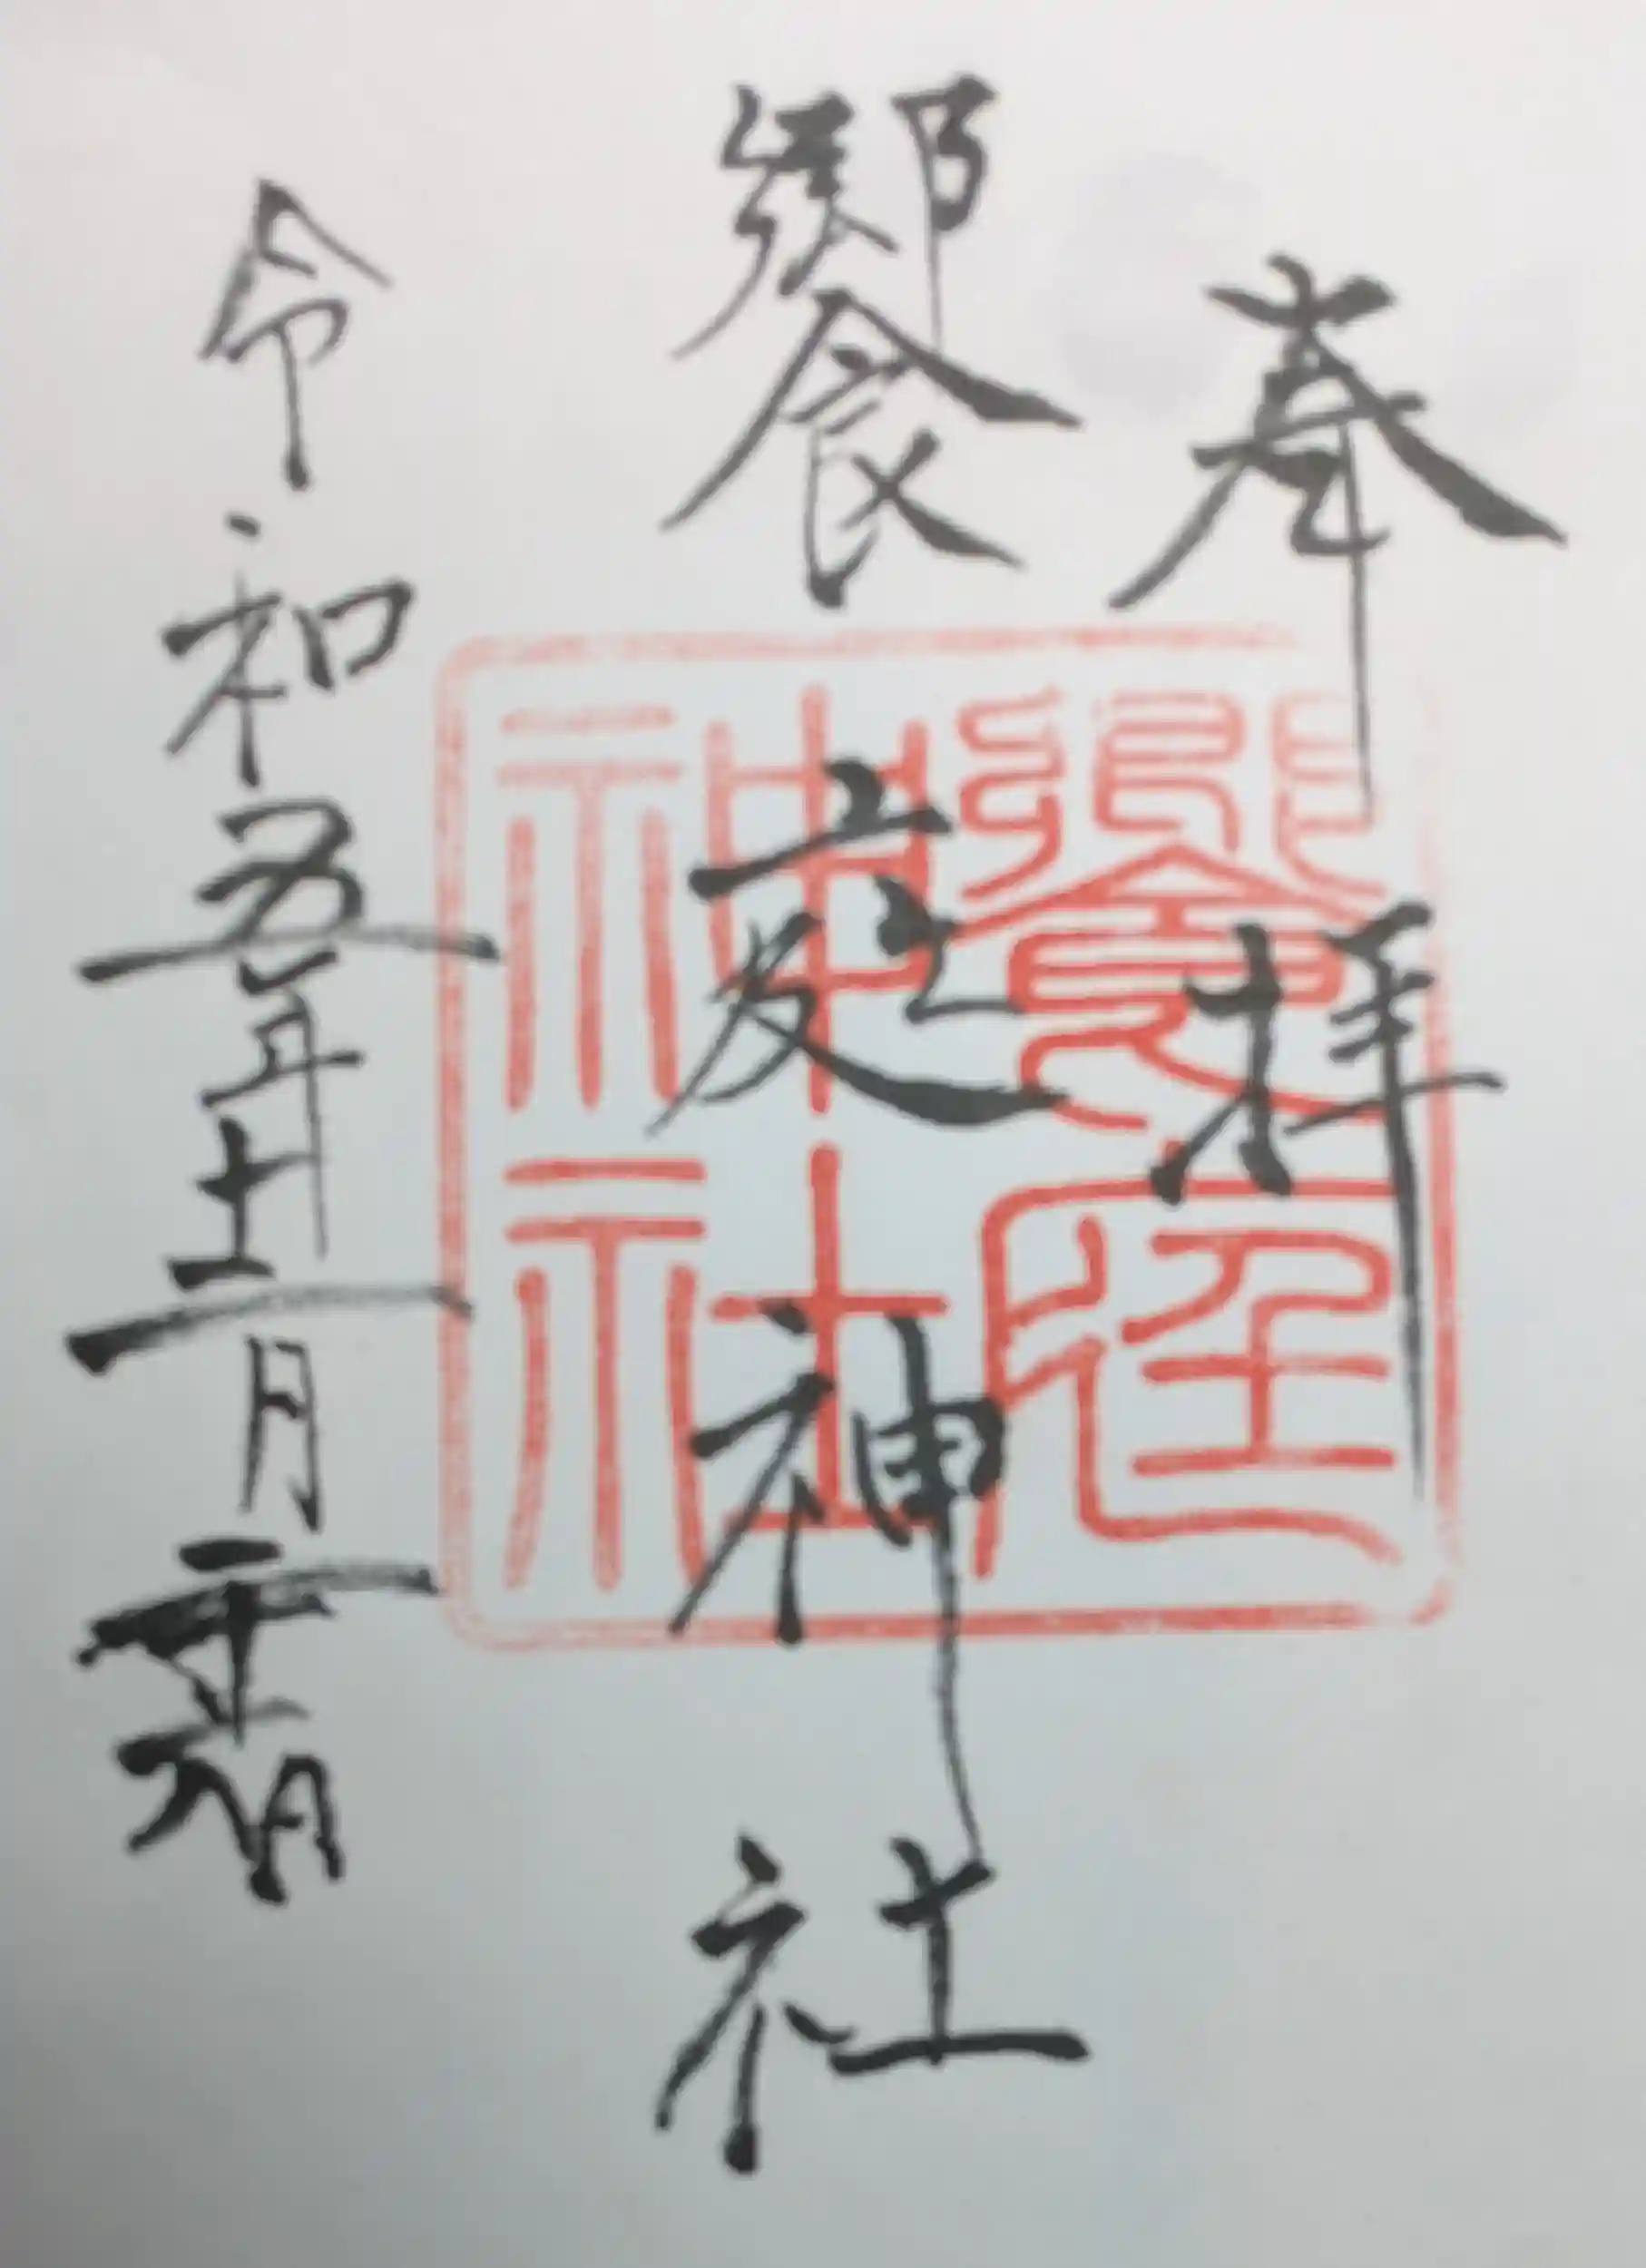 奉拝
饗庭神社
令和五年十二月二十六日
饗庭
神社